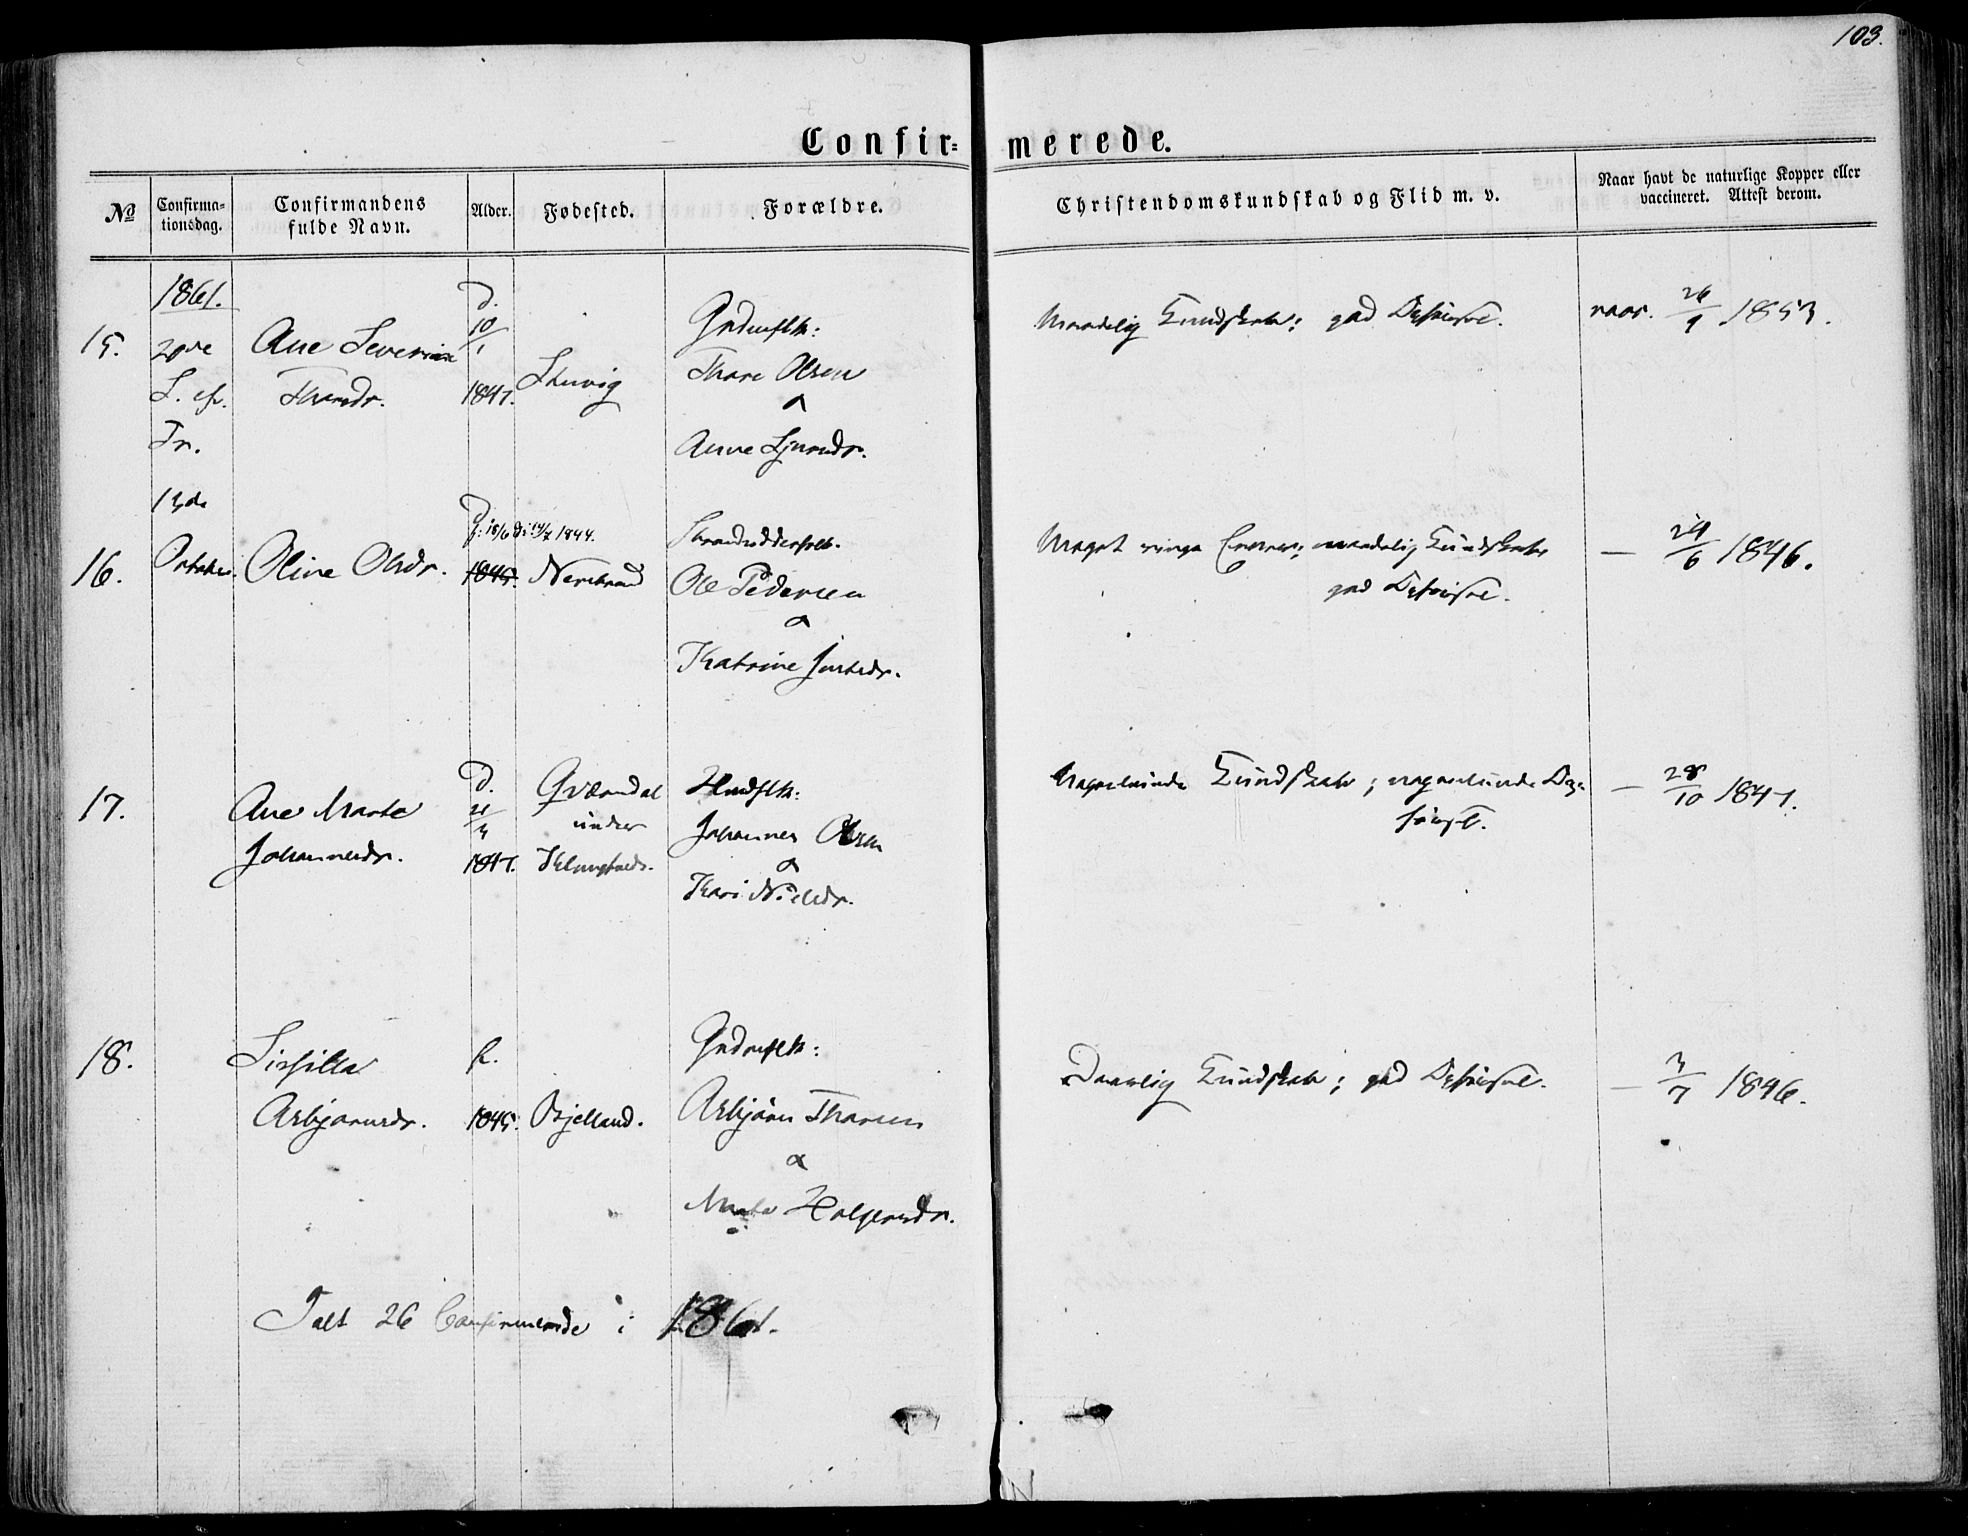 103.
Confir= merede.
No
Confirma=
tionsdag.
Confirmandens
fulde Navn.
Alder.
Fødested.
Forældre.
Christendomskundskab og Flid m. v.
Naar havt de naturlige Kopper eller
vaccineret. Attest derom.
1861.
15.
20de
S. ef.
Tr.
13de
Ane Severine
Thorsdr.
D.
10/1
1847.
Thore Olsen
&
Anne
Maadelig Kundskab; god Opførsel.
vacc. 26/9 1853.
16.
October.
Oline Olsdr.
D.
1845.
1844.
Ole Pedersen
&
Katrine
Meget ringe Evner; maadelig Kundskab
god Opførsel.
— 24/6 1846.
17.
Ane Marte
Johannesdr.
D.
21/3
1847.
Qværndal
under
Husflk:
Johannes Olsen
&
Kari Nilsdr.
Nogenlunde Kundskab; nogenlunde Op=
førsel.
— 28/10 1847.
18.
Sissilla
Asbjørnsdr.
f.
1845.
Bjelland.
Grdmflk:
Asbjørn Thorsen
&
Marte Holgersdr.
Daarlig Kundskab; god Opførsel.
— 3/7 1846.
Talt 26 Confirmerede i 1861.